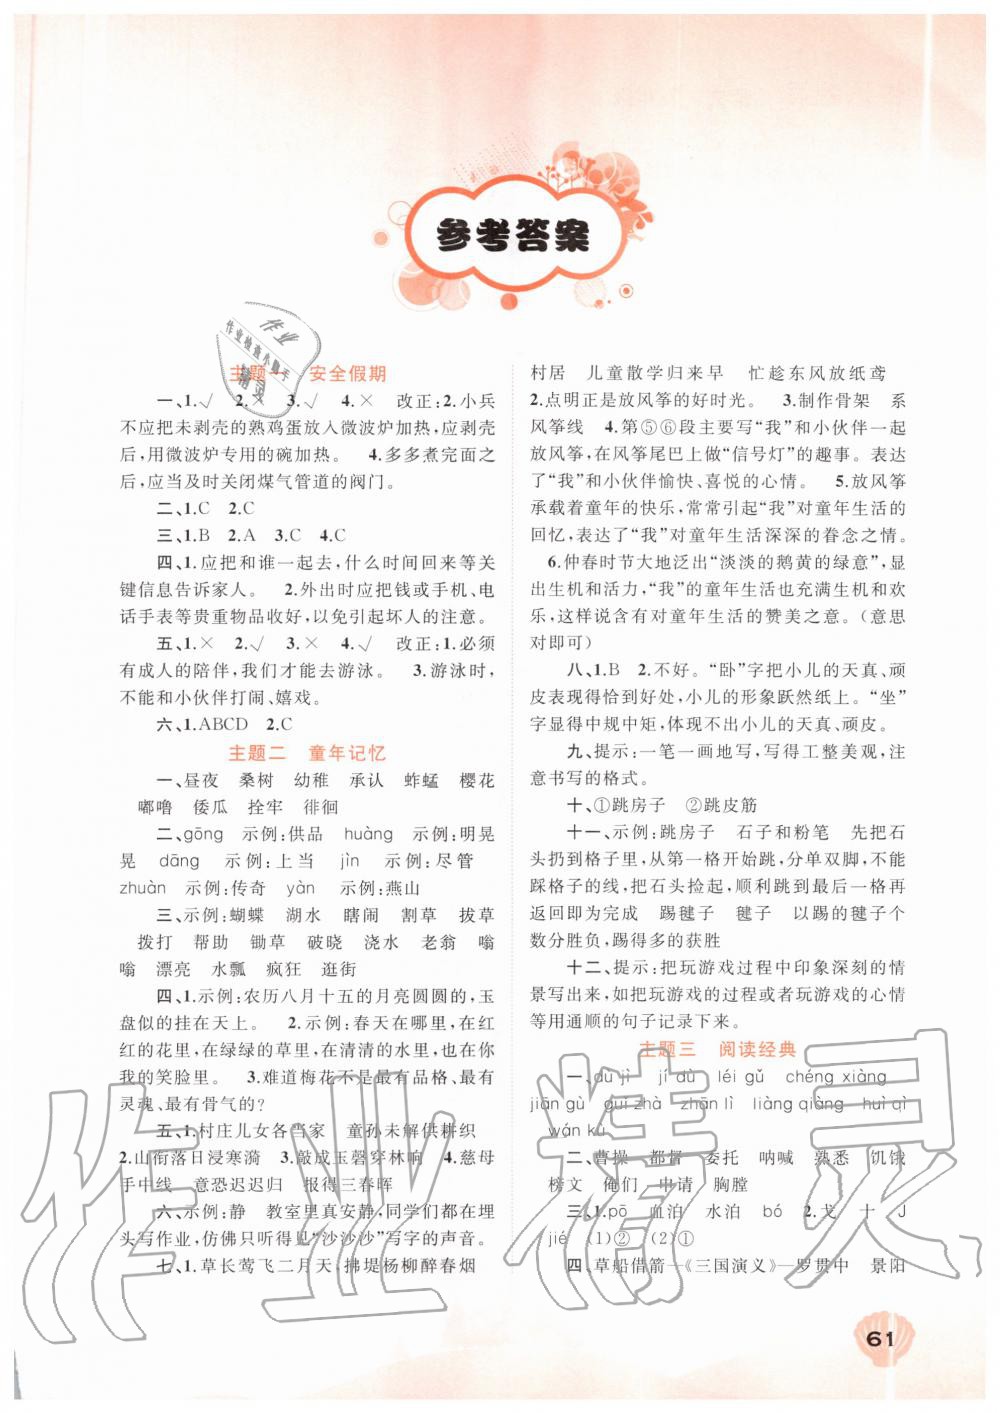 参考答案
作业
作业检查小助手
精灵
主题一 安全假期
一、1.√ 2.× 3.√ 4.× 改正:2.小兵
不应把未剥壳的熟鸡蛋放入微波炉加热,应剥壳
后,用微波炉专用的碗加热。 4.多多煮完面之
后,应当及时关闭煤气管道的阀门。
二、1.C 2.C
三、1.B 2.A 3.C 4.C
四、1.应把和谁一起去,什么时间回来等关
键信息告诉家人。 2.外出时应把钱或手机、电
话手表等贵重物品收好,以免引起坏人的注意。
五、1.× 2.√ 3.× 4.√ 改正:1.必须
有成人的陪伴,我们才能去游泳。 3.游泳时,
不能和小伙伴打闹、嬉戏。
六、1.ABCD 2.C
主题二 童年记忆
一、昼夜 桑树 幼稚 承认 蚱蜢 樱花
嘟噜 倭瓜 拴牢 徘徊
二、gōng 示例:供品 huàng 示例:明晃
晃 dāng 示例:上当 jìn 示例:尽管
zhuàn 示例:传奇 yàn 示例:燕山
三、示例:蝴蝶 湖水 瞎闹 割草 拔草
拨打 帮助 锄草 破晓 浇水 老翁 嗡
嗡 漂亮 水瓢 疯狂 逛街
四、1.示例:农历八月十五的月亮圆圆的,玉
盘似的挂在天上。 2.示例:春天在哪里,在红
红的花里,在绿绿的草里,在清清的水里,也在你
我的笑脸里。 3.难道梅花不是最有品格、最有
灵魂、最有骨气的?
五、1.村庄儿女各当家 童孙未解供耕织
2.山衔落日浸寒漪 3.敲成玉磬穿林响 4.慈母
手中线 意恐迟迟归 报得三春晖
六、示例:静 教室里真安静,同学们都在埋
头写作业,仿佛只听得见“沙沙沙”写字的声音。
七、1.草长莺飞二月天,拂堤杨柳醉春烟
村居 儿童散学归来早 忙趁东风放纸鸢
2.点明正是放风筝的好时光。 3.制作骨架 系
风筝线 4.第⑤⑥段主要写“我”和小伙伴一起
放风筝,在风筝尾巴上做“信号灯”的趣事。表达
了“我”和小伙伴愉快、喜悦的心情。 5.放风筝
承载着童年的快乐,常常引起“我”对童年生活的
回忆,表达了“我”对童年生活深深的眷念之情。
6.仲春时节大地泛出“淡淡的鹅黄的绿意”,显
出生机和活力,“我”的童年生活也充满生机和欢
乐,这样说含有对童年生活的赞美之意。(意思
对即可)
八、1.B 2.不好。“卧”字把小儿的天真、顽
皮表现得恰到好处,小儿的形象跃然纸上。“坐”
字显得中规中矩,体现不出小儿的天真、顽皮。
九、提示:一笔一画地写,写得工整美观,注
意书写的格式。
十、①跳房子 ②跳皮筋
十一、示例:跳房子 石子和粉笔 先把石
头扔到格子里,从第一格开始跳,分单双脚,不能
踩格子的线,把石头捡起,顺利跳到最后一格再
返回即为完成 踢毽子 毽子 以踢的毽子个
数分胜负,踢得多的获胜
十二、提示:把玩游戏过程中印象深刻的情
景写出来,如把玩游戏的过程或者玩游戏的心情
等用通顺的句子记录下来。
主题三 阅读经典
一、dū jì jí dù léi gǔ chéng xiàng
jiān gù guǐ zhà zhān lì liàng qiàng huì qì
wán kù
二、曹操 都督 委托 呐喊 熟悉 饥饿
榜文 俺们 申请 胸膛
三、1.pō 血泊 水泊 bó 2.戈 十 J
jié (1)② (2)①
四、草船借箭—《三国演义》—罗贯中 景阳
作业精灵
61